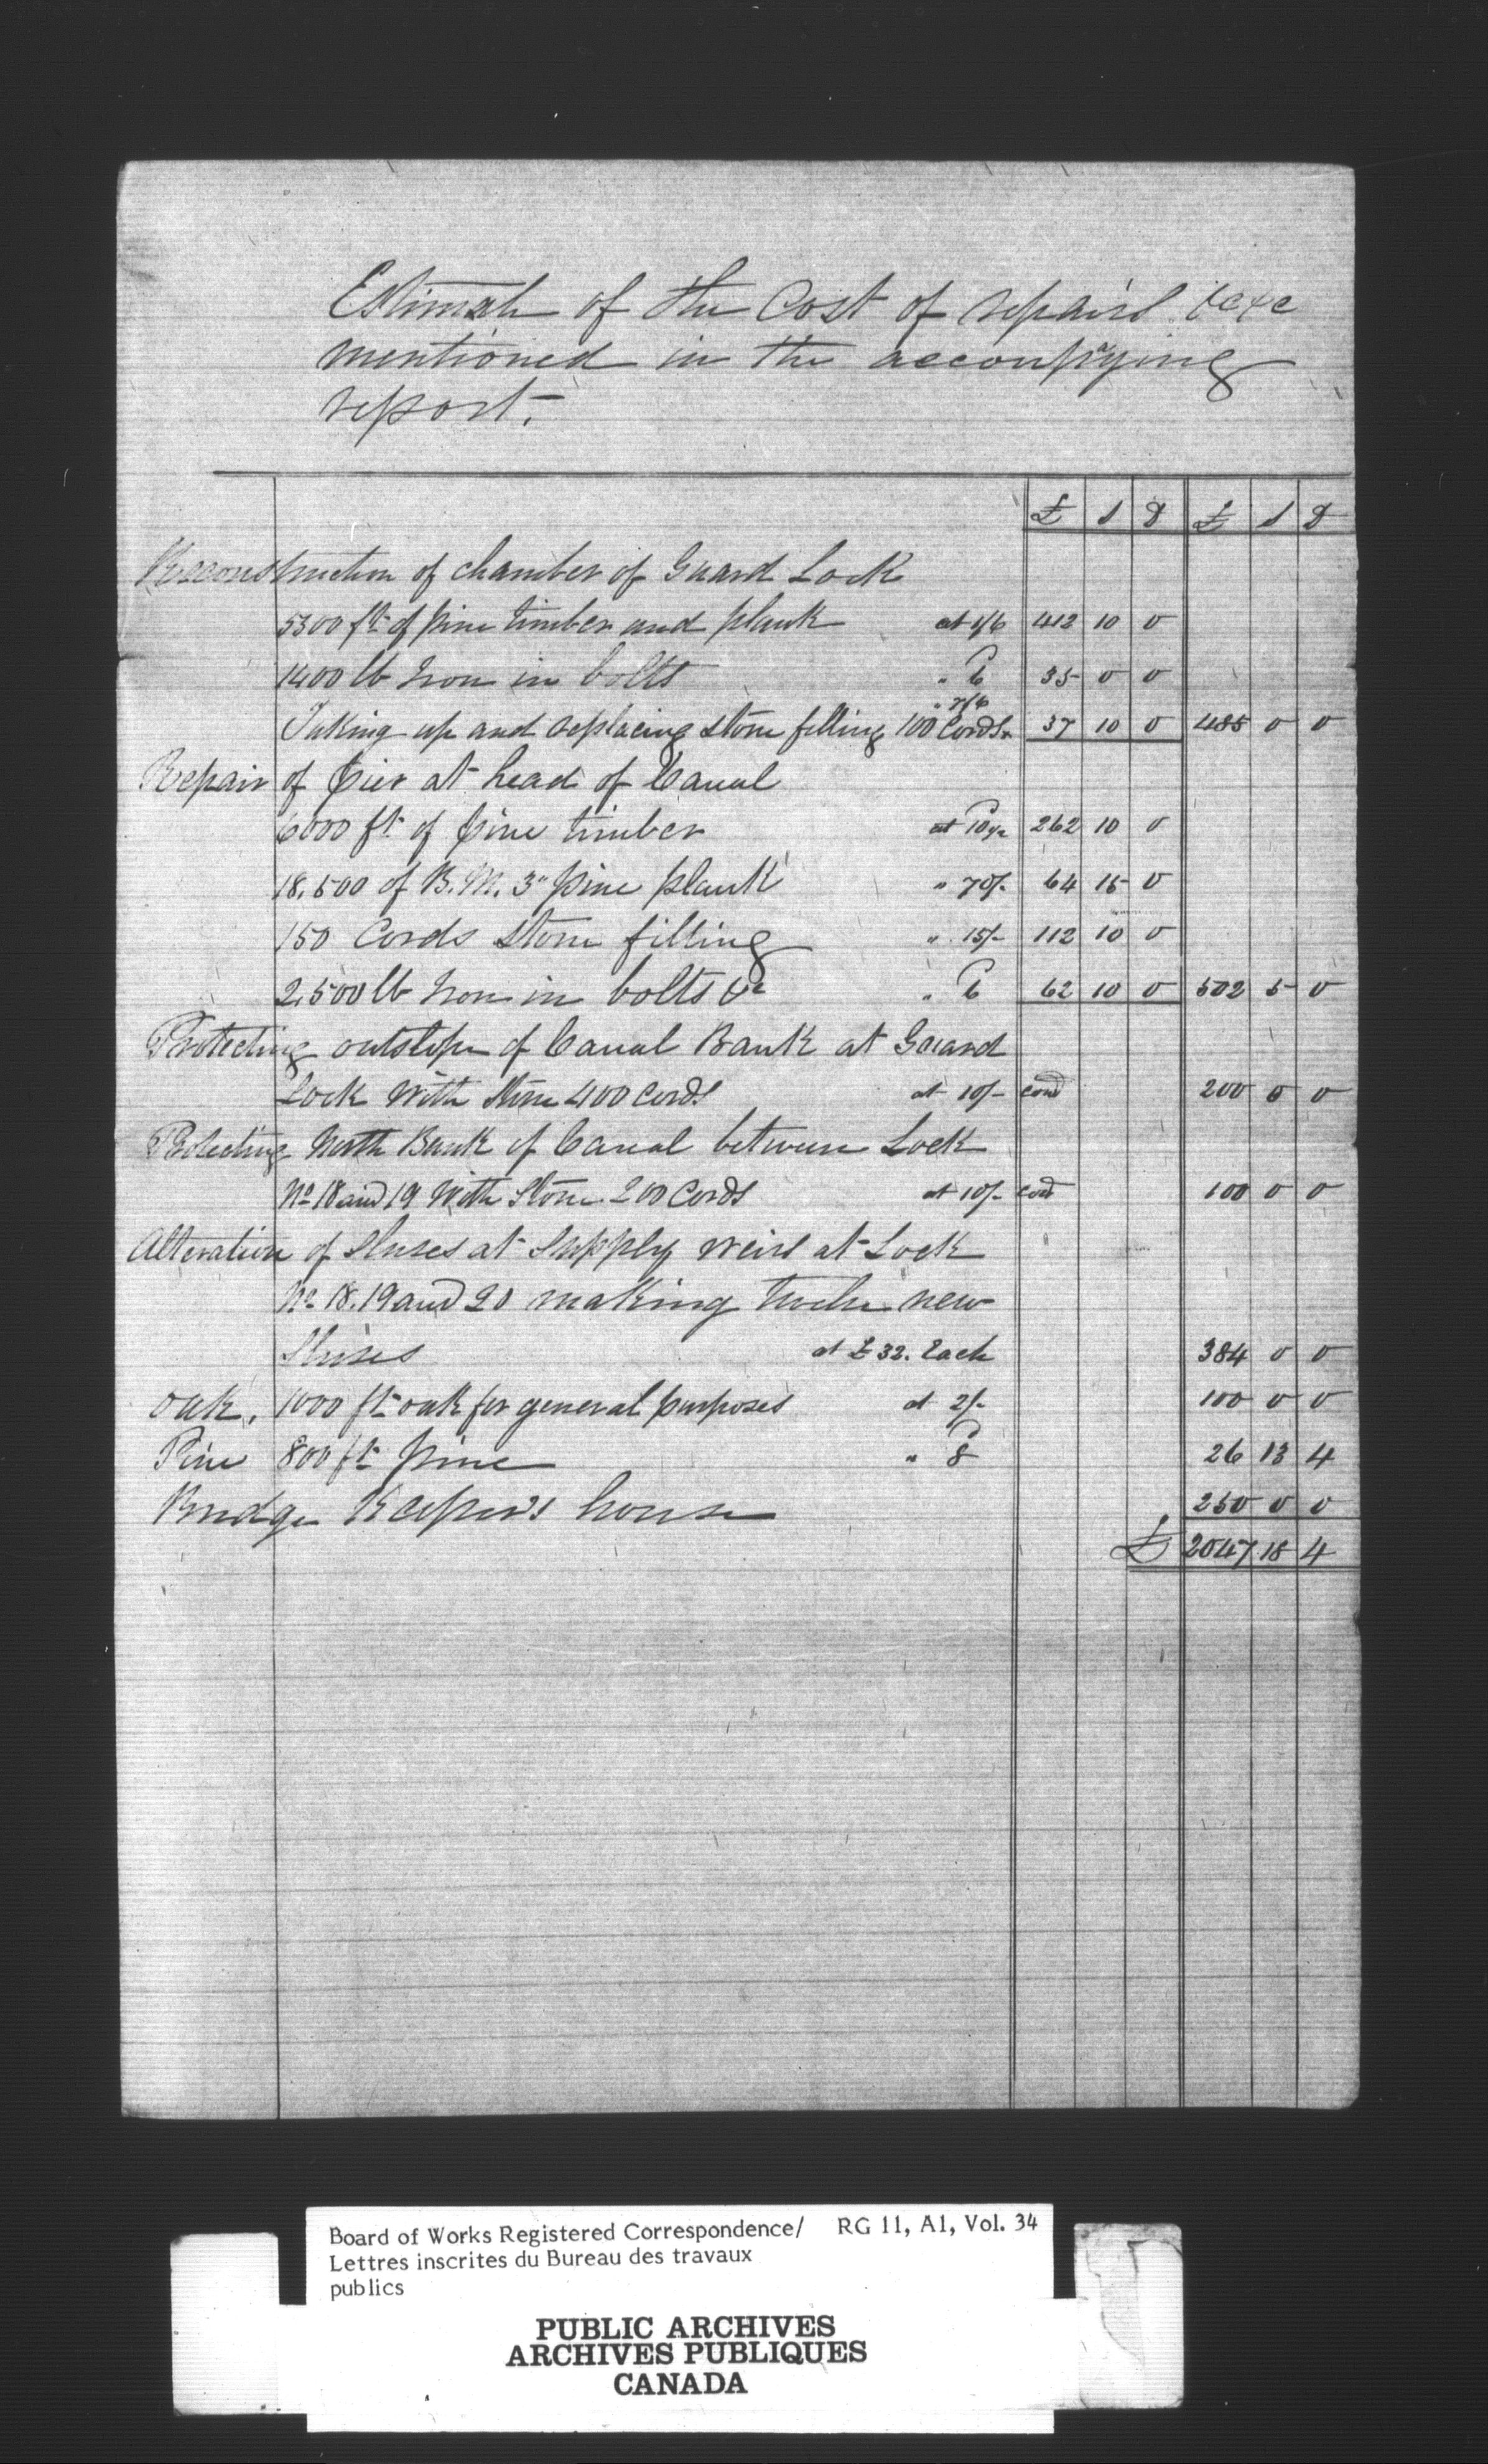 Estimate of the Cost of repairs &c &c
mentioned in the accompnying
report.
£ s d £ s d
Reconstruction of chamber of Guard Lock
5300 ft of pine timber and plank at 1/6 412 10 0
1400 lb Iron in bolts " 6 35 0 0
" 7/6
Taking up and replacing stone filling 100 Cords 37 10 0 485 0 0
Repair of Pier at head of Canal
6000 ft of pine timber at 10½ 262 10 0
18,500 of B.M. 3" pine plank " 70/- 64 15 0
150 Cords stone filling " 15/- 112 10 0
2,500 lb Iron in bolts &c " 6 62 10 0 502 5 0
Protecting outslope of Canal Bank at Guard
Lock With Stone 400 Cords at 10/- cord 200 0 0
Protecting North Bank of Canal between Lock
No 18 and 19 With Stone 200 Cords at 10/- cord 100 0 0
Alteration of Sluses at Supply weirs at Lock
No 18. 19 and 20 making twelve new
Sluses at £32. Each 384 0 0
Oak, 1000 ft oak for general purposes at 2/- 100 0 0
Pine 800 ft pine " 8 26 13 4
Bridge Keeper's house 250 0 0
£ 2047 18 4
Board of Works Registered Correspondence/ RG 11, A1, Vol. 34
Lettres inscrites du Bureau des travaux
publics
PUBLIC ARCHIVES
ARCHIVES PUBLIQUES
CANADA